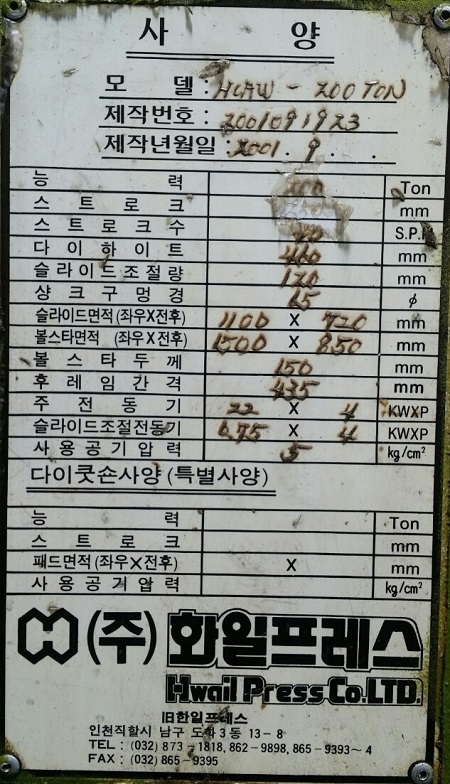 사 양
모 델 : HCAW - 200 TON
제작번호 : 2001091923
제작년월일 : 2001 . 9 . .
능 력 200 Ton
스 트 로 크 mm
스 트 로 크 수 S.P.
다 이 하 이 트 460 mm
슬 라 이 드 조 절 량 120 mm
샹 크 구 멍 경 65 ϕ
슬라이드면적 (좌우X전후) 1100 X 720 mm
볼스타면적 (좌우X전후) 1500 X 850 mm
볼 스 타 두 께 150 mm
후 레 임 간 격 435 mm
주 전 동 기 22 X 4 KWXP
슬라이드조절전동기 0.75 X 4 KWXP
사 용 공 기 압 력 5 kg/cm²
다이쿳숀사양 (특별사양)
능 력 Ton
스 트 로 크 mm
패드면적 (좌우X전후) X mm
사 용 공 겨 압 력 kg/cm²
(주) 화일프레스
Hwail Press Co.LTD.
旧한일프레스
인천직할시 남구 도화 3 동 13 - 8
TEL : (032) 873 - 1818, 862 - 9898, 865 - 9393 ~ 4
FAX : (032) 865 - 9395